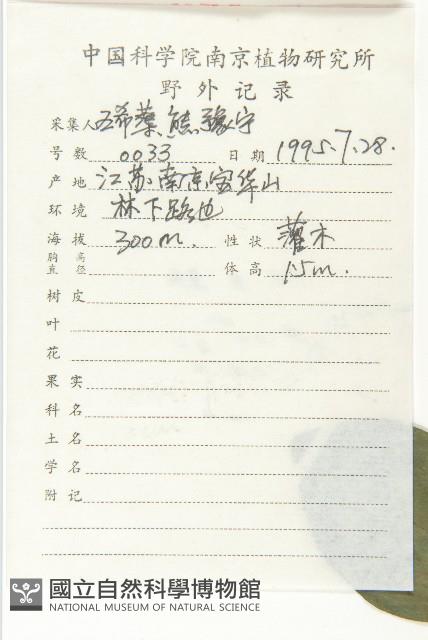 中国科学院南京植物研究所
野外记录
采集人 王希蕖 熊豫宁
号数 0033 日期 1995.7.28.
产地 江苏南京宝华山
环境 林下路边
海拔 300m. 性状 灌木
胸高直径 体高 1.5m.
树皮
叶
花
果实
科名
土名
学名
附记
國立自然科學博物館
NATIONAL MUSEUM OF NATURAL SCIENCE